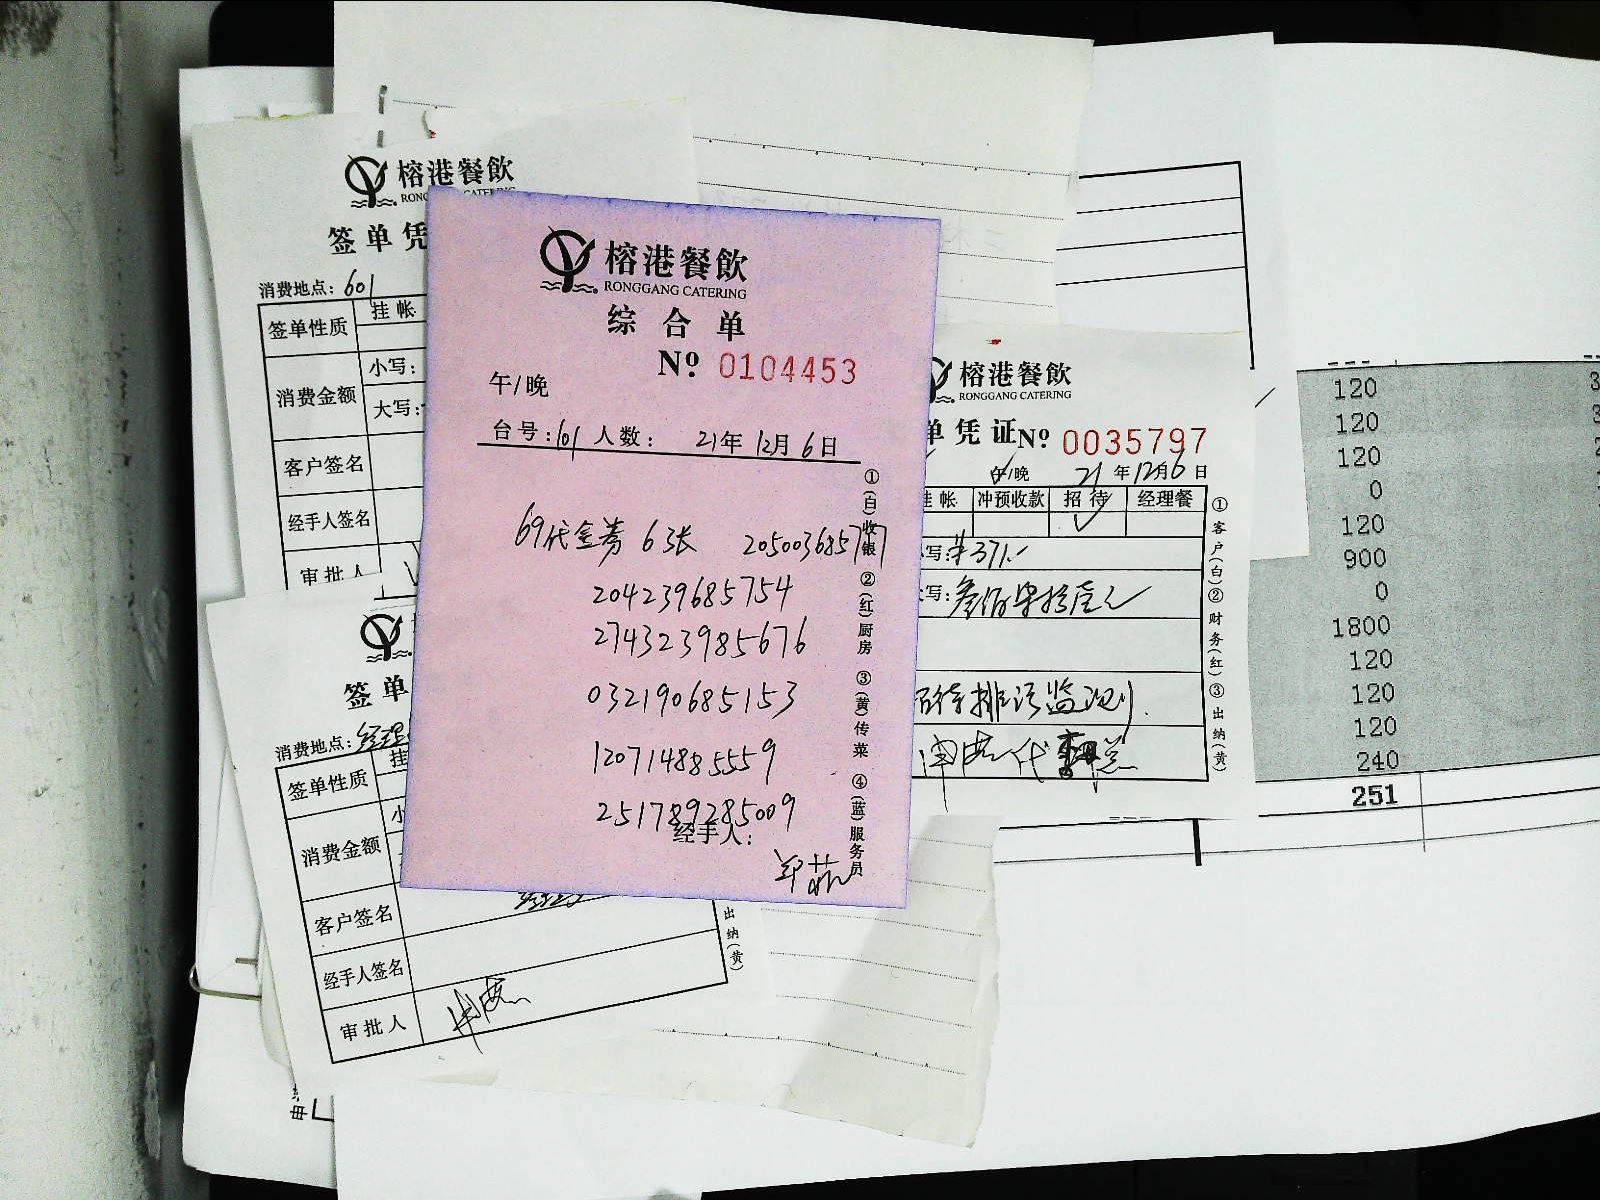 榕港餐飲
签单凭
消费地点：601
签单性质 挂帐
消费金额 小写：
大写：
客户签名
经手人签名
审批人
榕港餐飲
RONGGANG CATERING
综合单
Nº 0104453
午/晚
台号：601 人数： 21年12月6日
69代金券 6张 205003685777
204239685754
274323985676
032190685153
120714885559
251789285009
经手人：
①(白)收银 ②(红)厨房 ③(黄)传菜 ④(蓝)服务员
榕港餐飲
RONGGANG CATERING
单凭证 Nº 0035797
午/晚 21年12月6日
挂帐 冲预收款 招待 经理餐
写：¥371.-
写：叁佰柒拾壹元
招待排污监测
①客户(白) ②财务(红) ③出纳(黄)
签单
消费地点：经理
签单性质 挂
消费金额 小
客户签名
经手人签名
审批人
出纳(黄)
120
120
120
0
120
900
0
1800
120
120
120
240
251